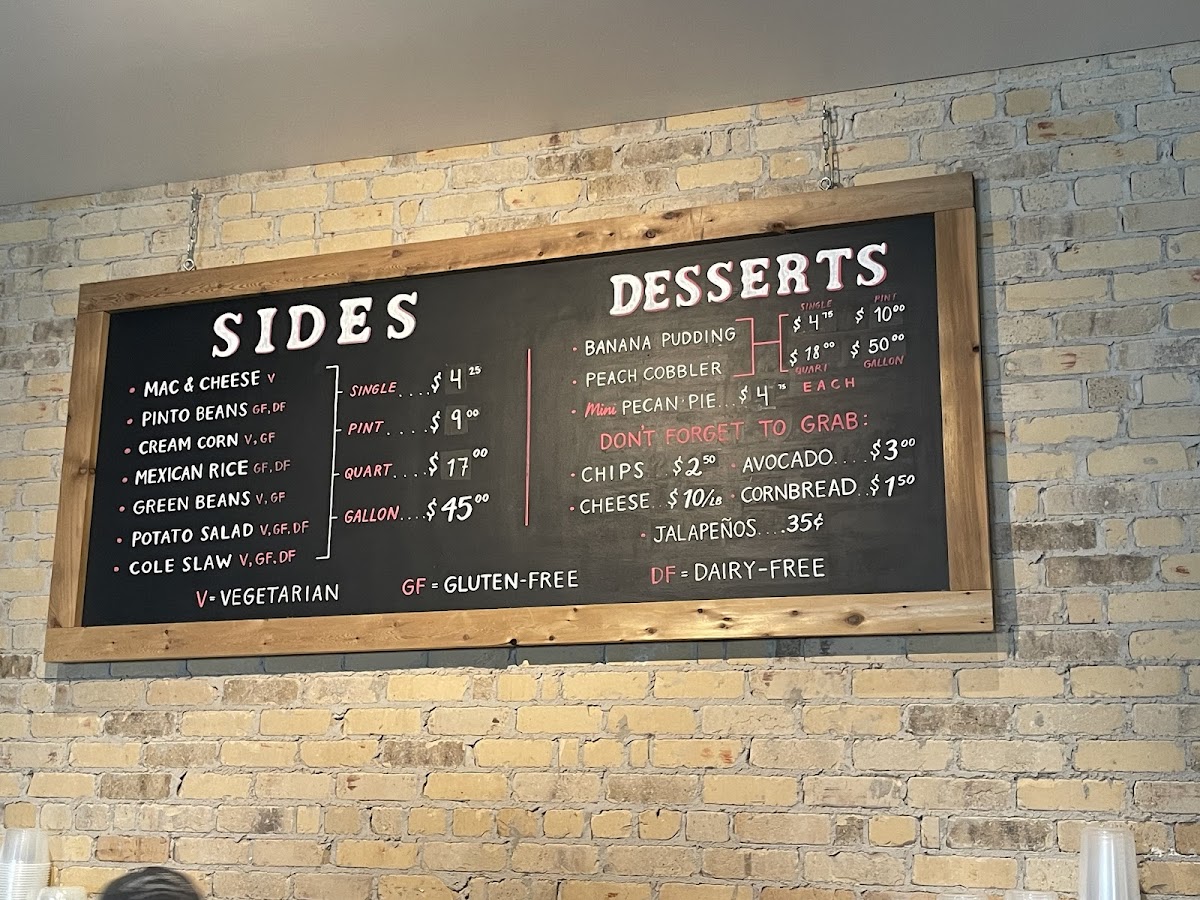 SIDES
• MAC & CHEESE V
• PINTO BEANS GF, DF
• CREAM CORN V, GF
• MEXICAN RICE GF, DF
• GREEN BEANS V, GF
• POTATO SALAD V, GF, DF
• COLE SLAW V, GF, DF
SINGLE....$4.25
PINT.....$9.00
QUART....$17.00
GALLON....$45.00
DESSERTS
• BANANA PUDDING
• PEACH COBBLER
SINGLE PINT
$4.75 $10.00
$18.00 $50.00
QUART GALLON
• Mini PECAN PIE...$4.75 EACH
DON'T FORGET TO GRAB:
• CHIPS $2.50 • AVOCADO....$3.00
• CHEESE $10/LB • CORNBREAD..$1.50
• JALAPEÑOS....35¢
V=VEGETARIAN GF=GLUTEN-FREE DF=DAIRY-FREE